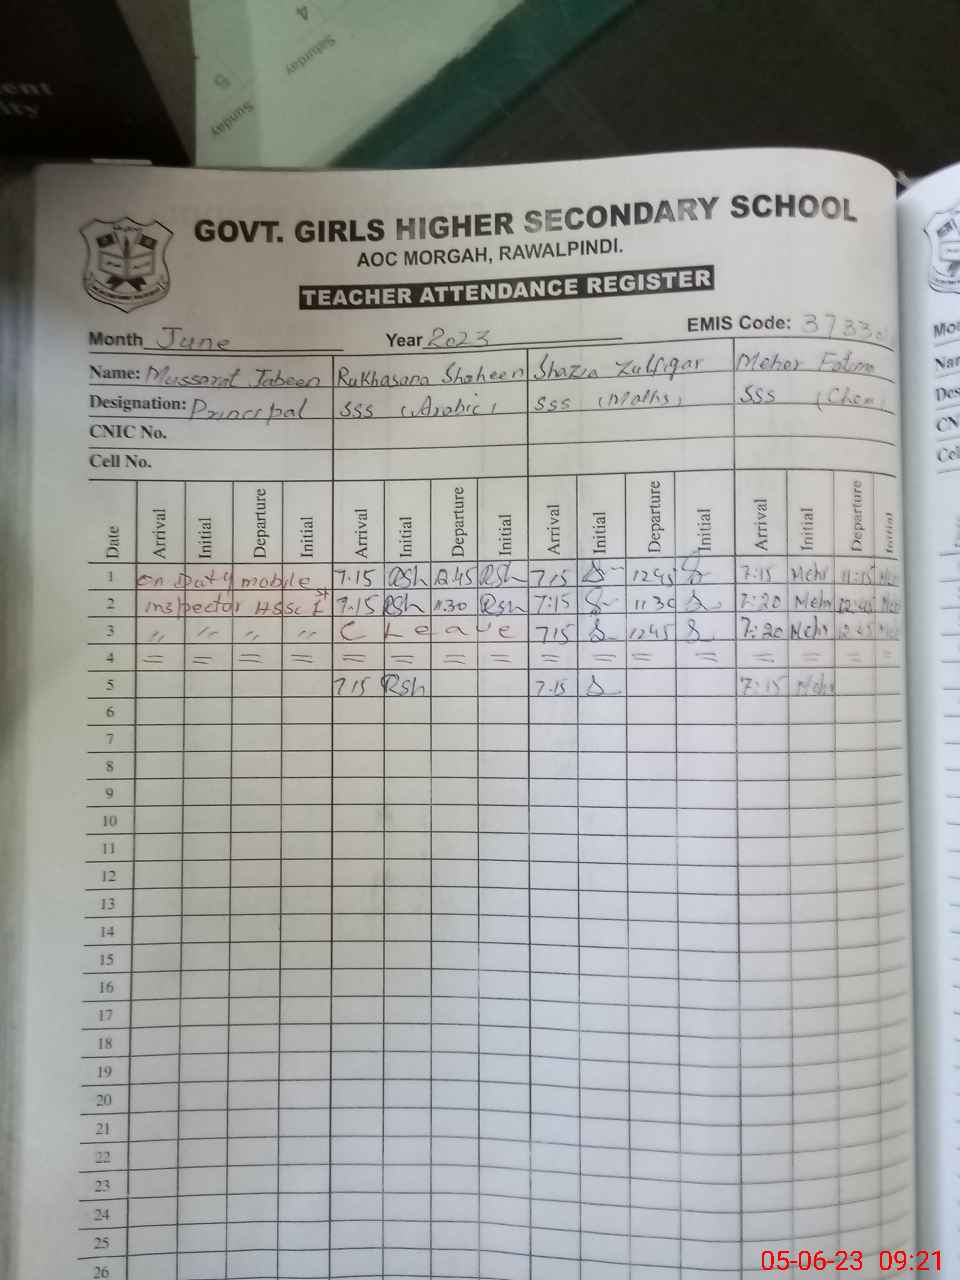 ent
ity
4
Saturday
5
Sunday
GOVT. GIRLS HIGHER SECONDARY SCHOOL
AOC MORGAH, RAWALPINDI.
TEACHER ATTENDANCE REGISTER
Month June Year 2023 EMIS Code: 3733
Name: Mussarat Jabeen Rukhasana Shaheen Shazia Zulfiqar Meher Fatima
Designation: Principal SSS (Arabic) SSS (Maths) SSS (Chem)
CNIC No.
Cell No.
Date Arrival Initial Departure Initial Arrival Initial Departure Initial Arrival Initial Departure Initial Arrival Initial Departure Initial
1 on Duty mobile 7.15 Rsh 12.45 Rsh 7.15 1245 7:15 Mehr 11:15
2 inspector HSSC 1st 7.15 Rsh 11.30 Rsh 7:15 1130 7:20 Mehr 12:45
3 〃 〃 〃 〃 C Leave 715 1245 7:20 Mehr 12:45
4 = = = = = = = = = = = = = = = =
5 715 Rsh 7.15 7:15 Mehr
6
7
8
9
10
11
12
13
14
15
16
17
18
19
20
21
22
23
24
25
26
Mo
Nar
Des
CN
Cel
05-06-23 09:21